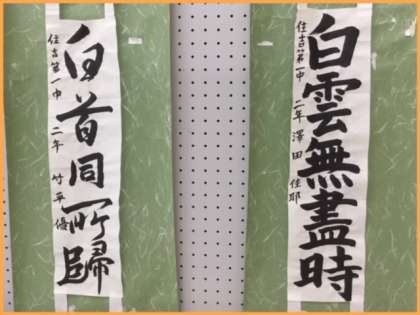 白雲無盡時
住吉第一中 二年 澤田 佳耶
白首同所歸
住吉第一中 二年 竹平 優